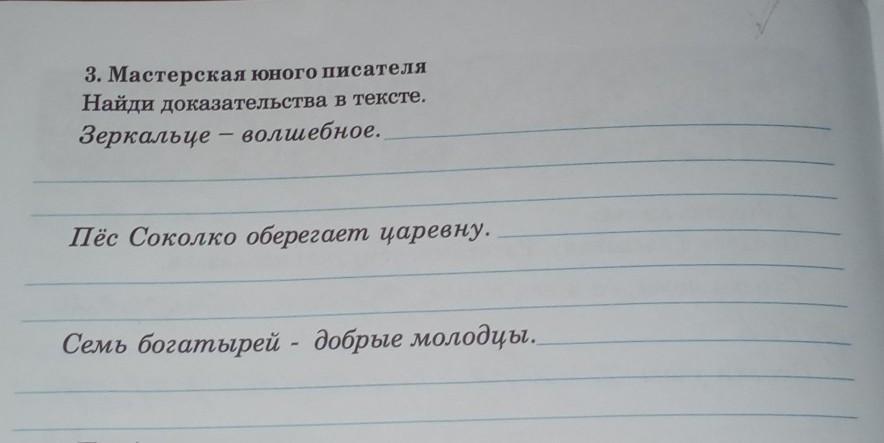 3. Мастерская юного писателя
Найди доказательства в тексте.
Зеркальце – волшебное.
Пёс Соколко оберегает царевну.
Семь богатырей - добрые молодцы.